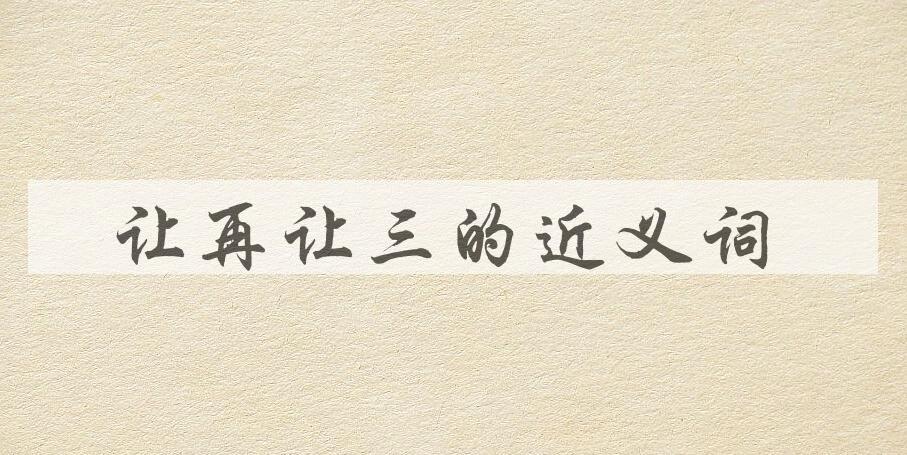 让再让三的近义词